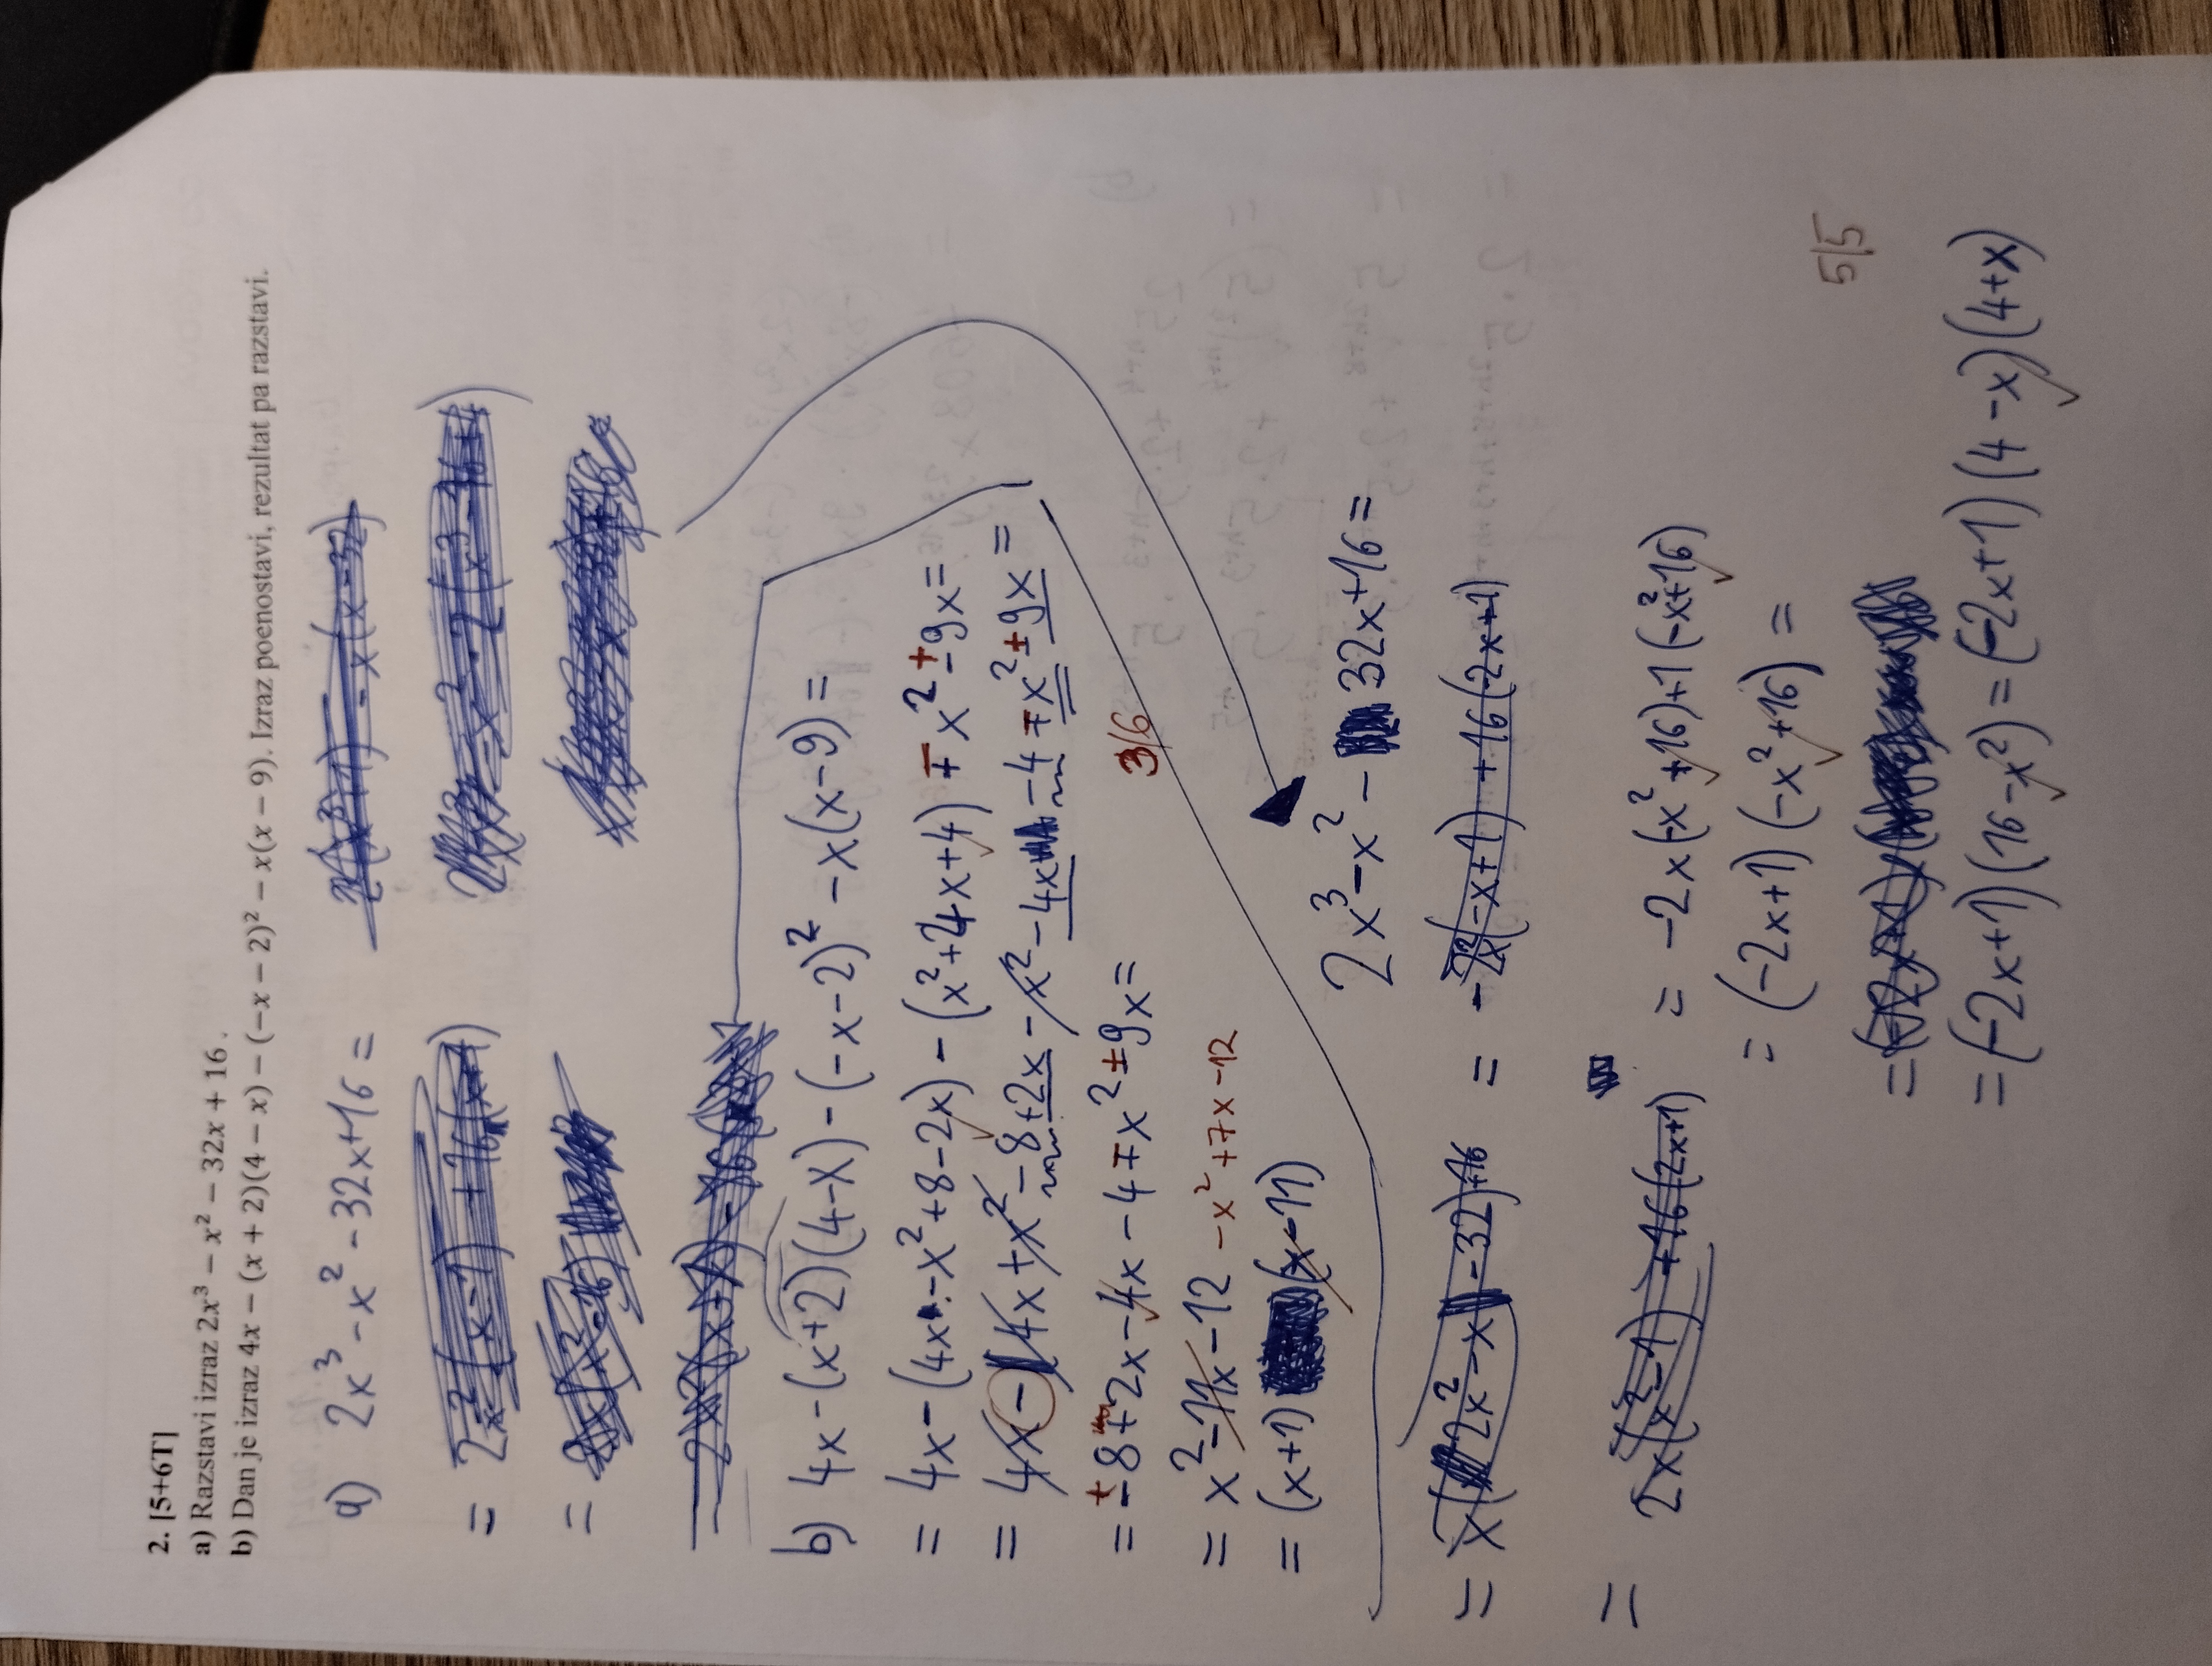 2. [5+6T]
a) Razstavi izraz 2x³ − x² − 32x + 16 .
b) Dan je izraz 4x − (x + 2)(4 − x) − (−x − 2)² − x(x − 9). Izraz poenostavi, rezultat pa razstavi.
a) 2x³ − x² − 32x + 16 =
2(x³+1) − x(x−32)
= 2x²(x−1) + 16(x+1)
=
b) 4x − (x+2)(4−x) − (−x−2)² − x(x−9) =
= 4x − (4x − x² + 8 − 2x) − (x² + 4x + 4) ∓ x² ± 9x =
= 4x − 4x + x² − 8 + 2x − x² − 4x − 4 ∓ x² ± 9x =
= ± 8 + 2x − 4x − 4 ∓ x² ± 9x =
3/6
= x² − 11x − 12 − x² + 7x − 12
= (x+1) (x−11)
2x³ − x² − 32x + 16 =
= x(2x² − x − 32) + 16 = −2x²(−x+1) + 16(−2x+1)
= 2x(x²−1) + 16(2x+1) = −2x(−x² + 16) + 1(−x² + 16)
= (−2x+1)(−x² + 16) =
5/5
= (−2x+1)(16 − x²) = (−2x+1)(4 − x)(4+x)